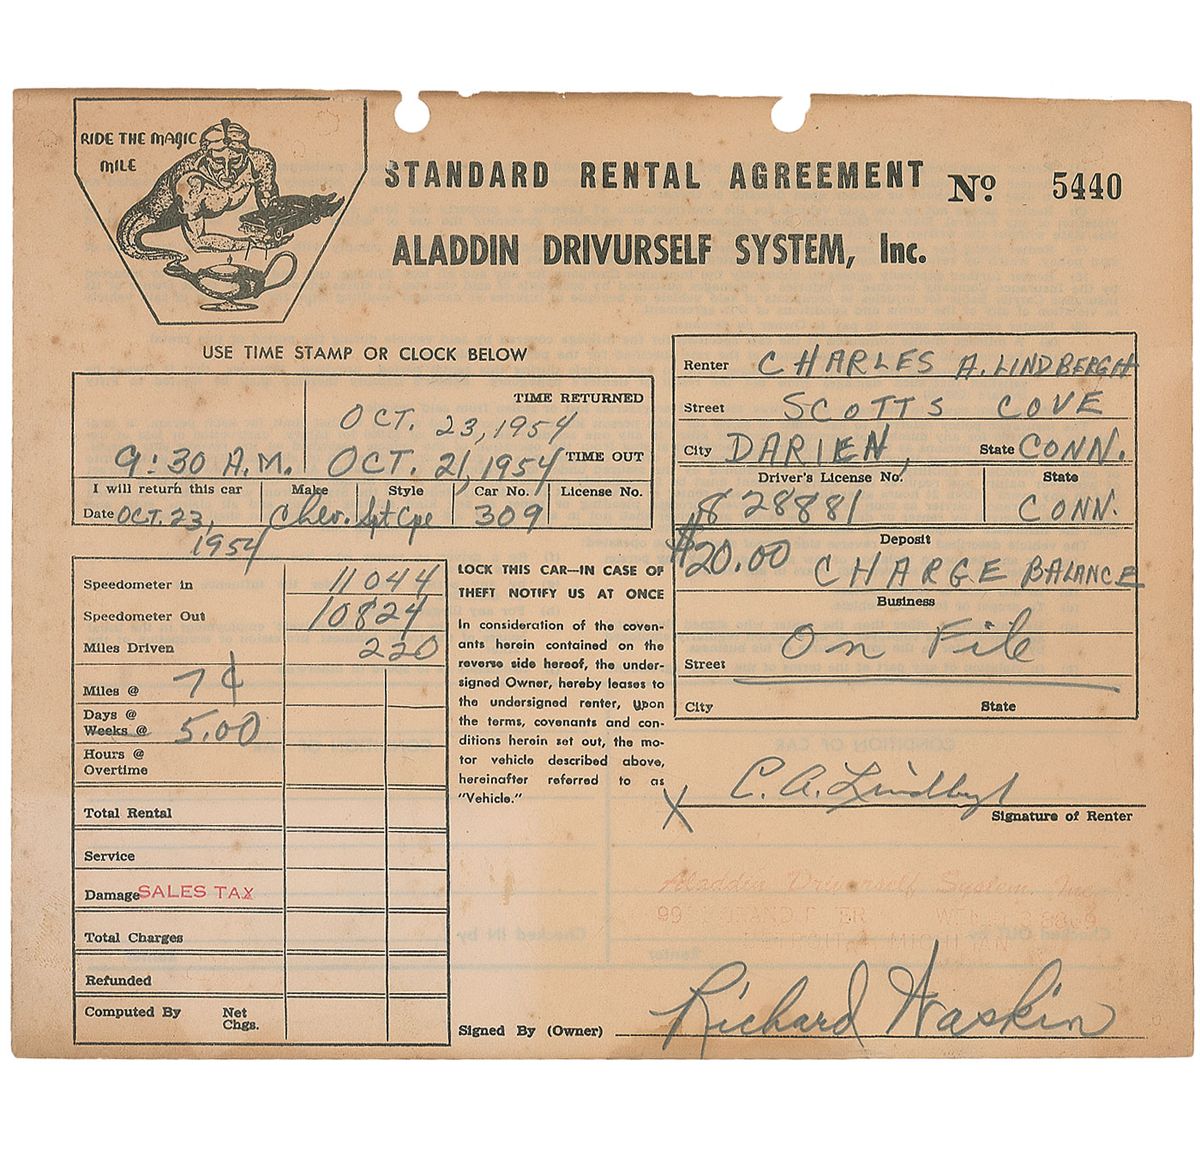 RIDE THE MAGIC
MILE
STANDARD RENTAL AGREEMENT Nº 5440
ALADDIN DRIVURSELF SYSTEM, Inc.
USE TIME STAMP OR CLOCK BELOW
TIME RETURNED
OCT. 23, 1954
9:30 A.M. OCT. 21, 1954 TIME OUT
I will return this car Make Style Car No. License No.
Date OCT. 23, Chev. Spt Cpe 309
1954
Renter CHARLES A. LINDBERGH
Street SCOTTS COVE
City DARIEN, State CONN.
Driver's License No. State
828881 CONN.
Deposit
$20.00 CHARGE BALANCE
Business
On File
Street
City State
Speedometer in 11044
Speedometer Out 10824
Miles Driven 220
Miles @ 7¢
Days @
Weeks @ 5.00
Hours @
Overtime
Total Rental
Service
Damage SALES TAX
Total Charges
Refunded
Computed By Net
Chgs.
LOCK THIS CAR—IN CASE OF
THEFT NOTIFY US AT ONCE
In consideration of the coven-
ants herein contained on the
reverse side hereof, the under-
signed Owner, hereby leases to
the undersigned renter, upon
the terms, covenants and con-
ditions herein set out, the mo-
tor vehicle described above,
hereinafter referred to as
"Vehicle."
X C. A. Lindbergh
Signature of Renter
Aladdin Drivurself System, Inc.
Signed By (Owner) Richard Haskin